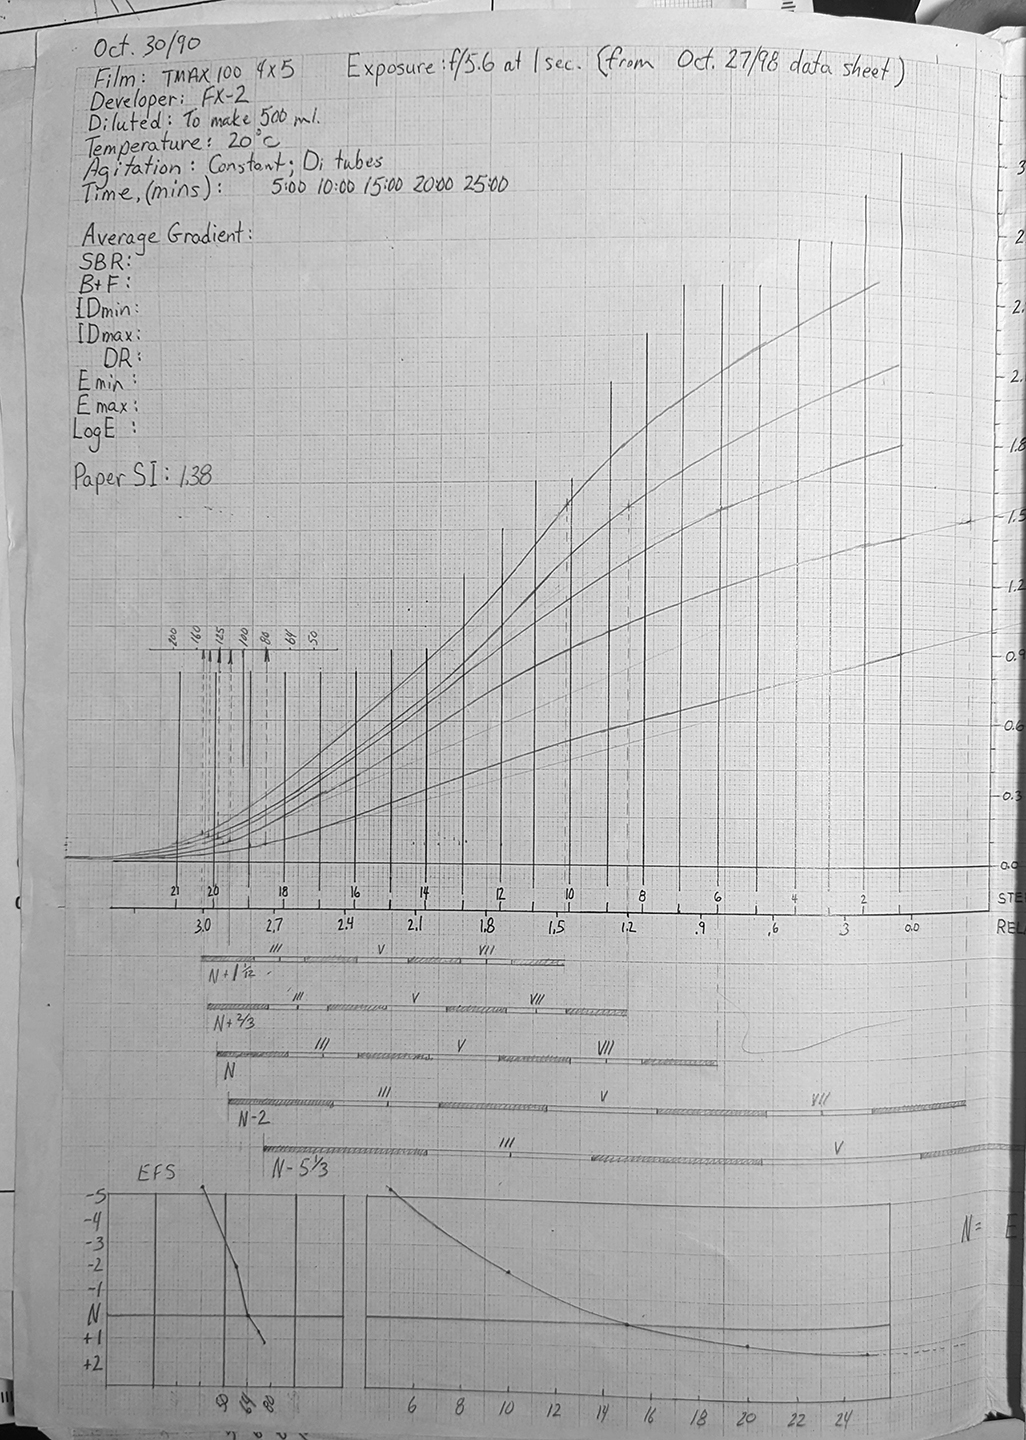 Oct. 30/90
Film: TMAX 100 4x5 Exposure: f/5.6 at 1 sec. (from Oct. 27/98 data sheet)
Developer: FX-2
Diluted: To make 500 ml.
Temperature: 20°C
Agitation: Constant; Di tubes
Time, (mins): 5:00 10:00 15:00 20:00 25:00
Average Gradient:
SBR:
B+F:
IDmin:
IDmax:
DR:
Emin:
Emax:
LogE:
Paper SI: 1.38
3
2
2.
2.
1.8
1.5
1.2
0.9
0.6
0.3
0.0
200 160 125 100 80 64 50
21 20 18 16 14 12 10 8 6 4 2 STE
3.0 2.7 2.4 2.1 1.8 1.5 1.2 .9 .6 .3 0.0 REL
III V VII
N+1 1/2
III V VII
N+2/3
III V VII
N
III V VII
N-2
III V
N-5 1/3
EFS
-5
-4
-3
-2
-1
N
+1
+2
N= E
50 64 80
6 8 10 12 14 16 18 20 22 24